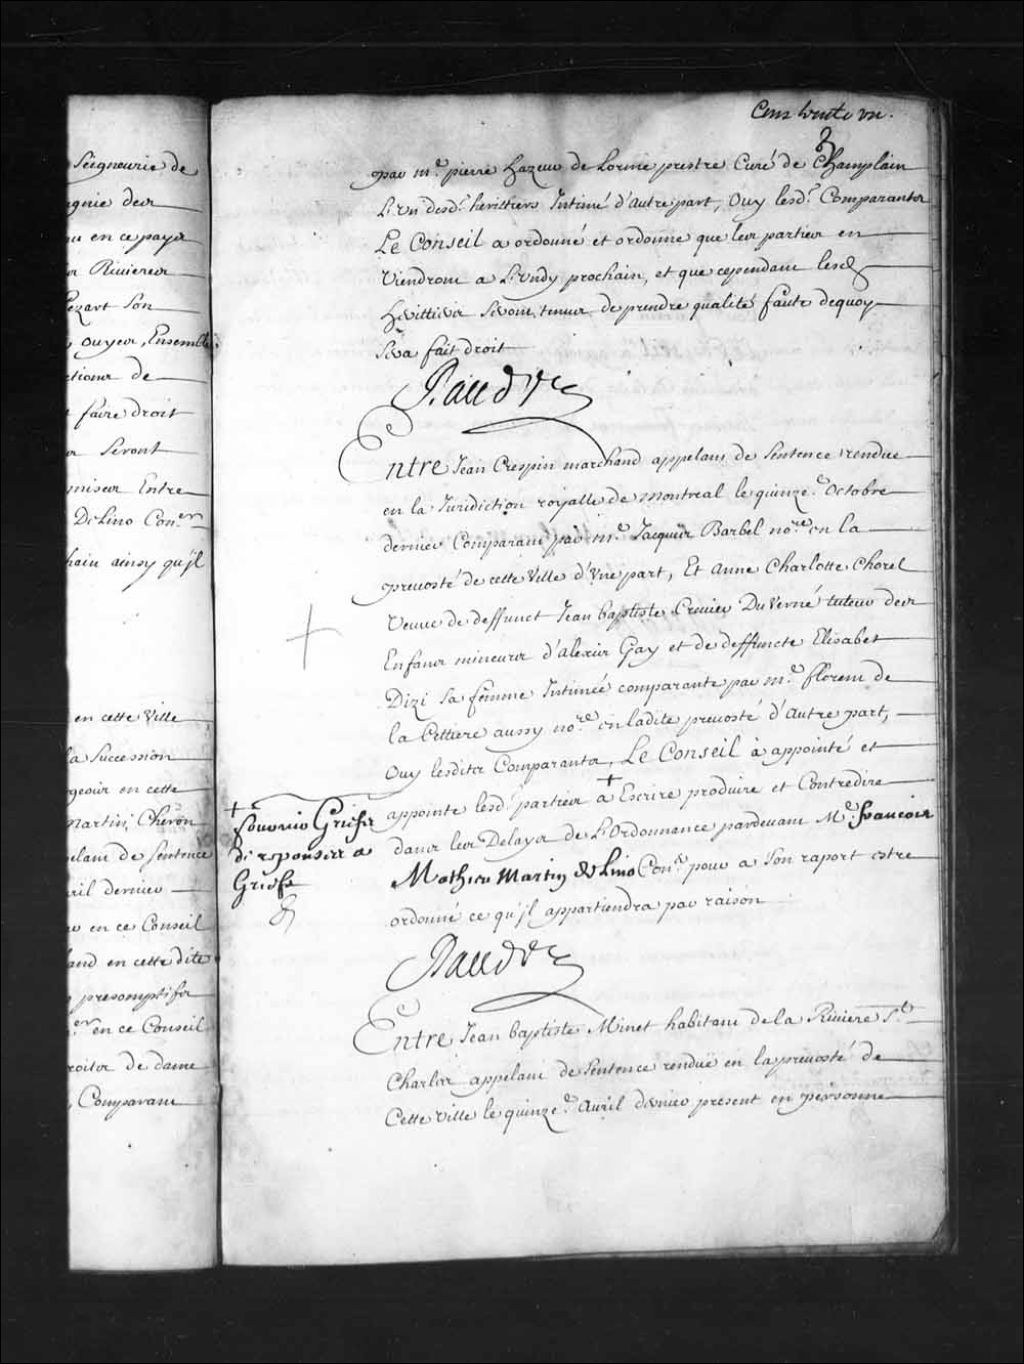 Seigneurie de
gnie des
au en ce pays
Rivieres
ezart son
ouyes, Ensemble
ctions de
faire droit
seront
miser Entre
DeLino Con.er
hain ainsy qu'jl
en cette Ville
la Succession
geois en cette
Martin Cheron
elant de Sentence
ril dernier
en ce Conseil
and en cette dite
presomptifs
er en ce Conseil
roits de dame
, Comparant
Cent trente un.
par M.e pierre hazeur de Lorme prestre Curé de Champlain
L'un desd. herittiers Intimé d'Autre part, Ouy lesd. Comparants
Le Conseil a ordonné et ordonne que les parties en
Viendront a Lundy prochain, et que cependant lesd.
herittiers seront tenus de prendre qualité faute dequoy
sera fait droit
Entre Jean Crespin marchand appelant de sentence rendue
en la Juridiction royalle de montreal le quinze.e Octobre
dernier Comparant par M.e Jacques Barbel no.re en la
prevosté de cette Ville d'Une part, Et Anne Charlotte Chorel
Veuve de deffunct Jean baptiste Crevier Du Verné tuteur des
Enfans mineurs d'alexis Gay et de deffuncte Elisabet
Dizi sa femme Intimée comparante par M.e florent de
la Cettiere aussy no.re en ladite prevosté d'Autre part,
Ouy lesdits Comparants, Le Conseil à appointé et
appointe lesd. parties a + Escrire produire et Contredire
dans les Delays de L'Ordonnance pardevant M.e francois
Mathieu Martin de Lino Con.er pour a son raport estre
ordonné ce qu'jl appartiendra par raison
+ fournir Griefs
et responses a
Griefs
Entre Jean baptiste Minet habitant de la Riviere S.t
Charles appelant de Sentence rendüe en la prevosté de
Cette ville le quinze.e Avril dernier present en personne